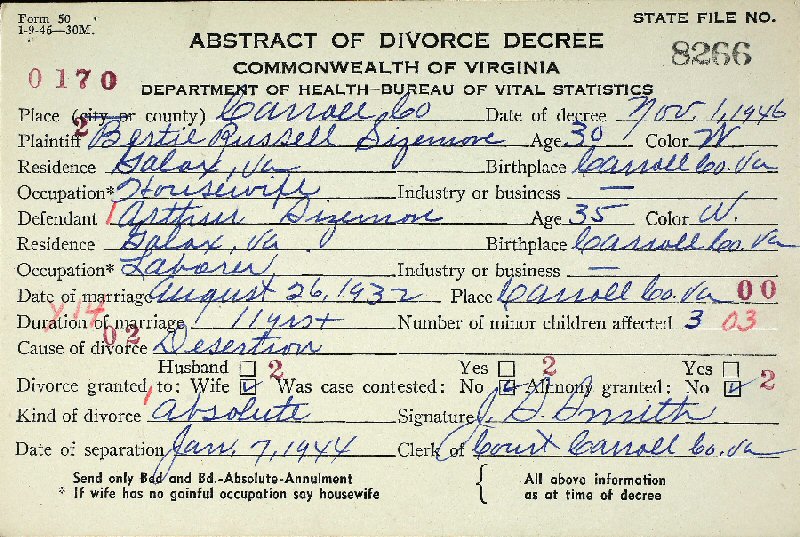 Form 50
1-9-45—30M.
STATE FILE NO.
ABSTRACT OF DIVORCE DECREE
8266
COMMONWEALTH OF VIRGINIA
0170
DEPARTMENT OF HEALTH—BUREAU OF VITAL STATISTICS
Place (city or county) Carroll Co Date of decree Nov. 1, 1946
2
Plaintiff Bertie Russell Sizemore Age 30 Color W
Residence Galax, Va Birthplace Carroll Co. Va
Occupation* Housewife Industry or business —
Defendant 1 Arthur Sizemore Age 35 Color W.
Residence Galax, Va. Birthplace Carroll Co. Va
Occupation* Laborer Industry or business —
Date of marriage August 26, 1932 Place Carroll Co. Va 00
Duration of marriage 11 yrs + Number of minor children affected 3 03
y14
02
Cause of divorce Desertion
Husband ☐ 2 Yes ☐ 2 Yes ☐
Divorce granted to: Wife ☑ Was case contested: No ☑ Alimony granted: No ☑ 2
1
Kind of divorce Absolute Signature J. G. Smith
Date of separation Jan. 7, 1944 Clerk of Court Carroll Co. Va
Send only Bed and Bd.-Absolute-Annulment { All above information
* If wife has no gainful occupation say housewife as at time of decree